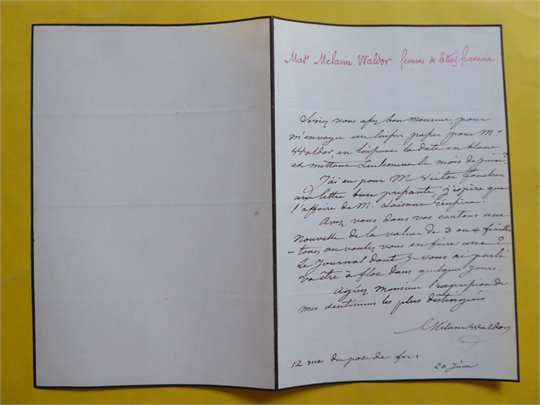 Made Mélanie Waldor femme de lettres française
Seriez vous assez bon Monsieur pour
m'envoyer un laisser passer pour Mr
Waldor, en laissant la date en blanc
et mettant seulement le mois de juin?
J'ai eu pour M. Victor
une lettre bien pressante, j'espère que
l'affaire de M.
Avez vous dans vos cartons une
Nouvelle de la valeur de 3 ou 4 feuille
-tons ou voulez vous en faire une?
Le Journal dont je vous ai parlé
va être à flot dans quelques jours.
Agréez Monsieur l'expression de
mes sentimens les plus distingués
Mélanie Waldor
12 rue du pas de
20 juin